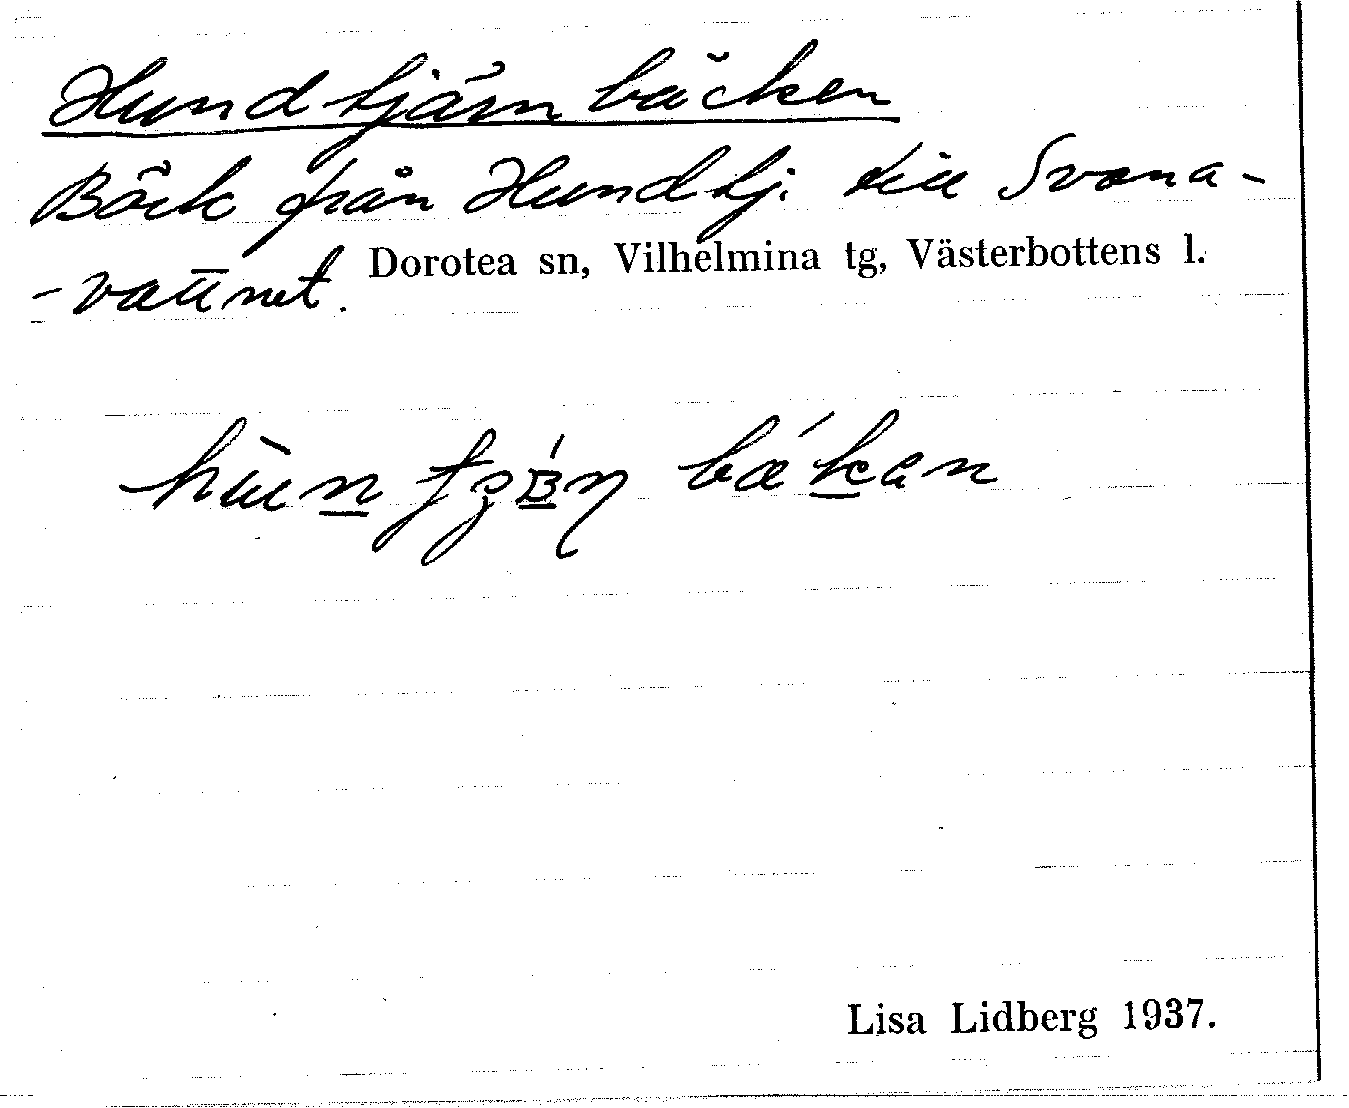 Hundtjärnbäcken
Bäck från Hundtj. till Svana-
-vattnet. Dorotea sn, Vilhelmina tg, Västerbottens l.
Lisa Lidberg 1937.